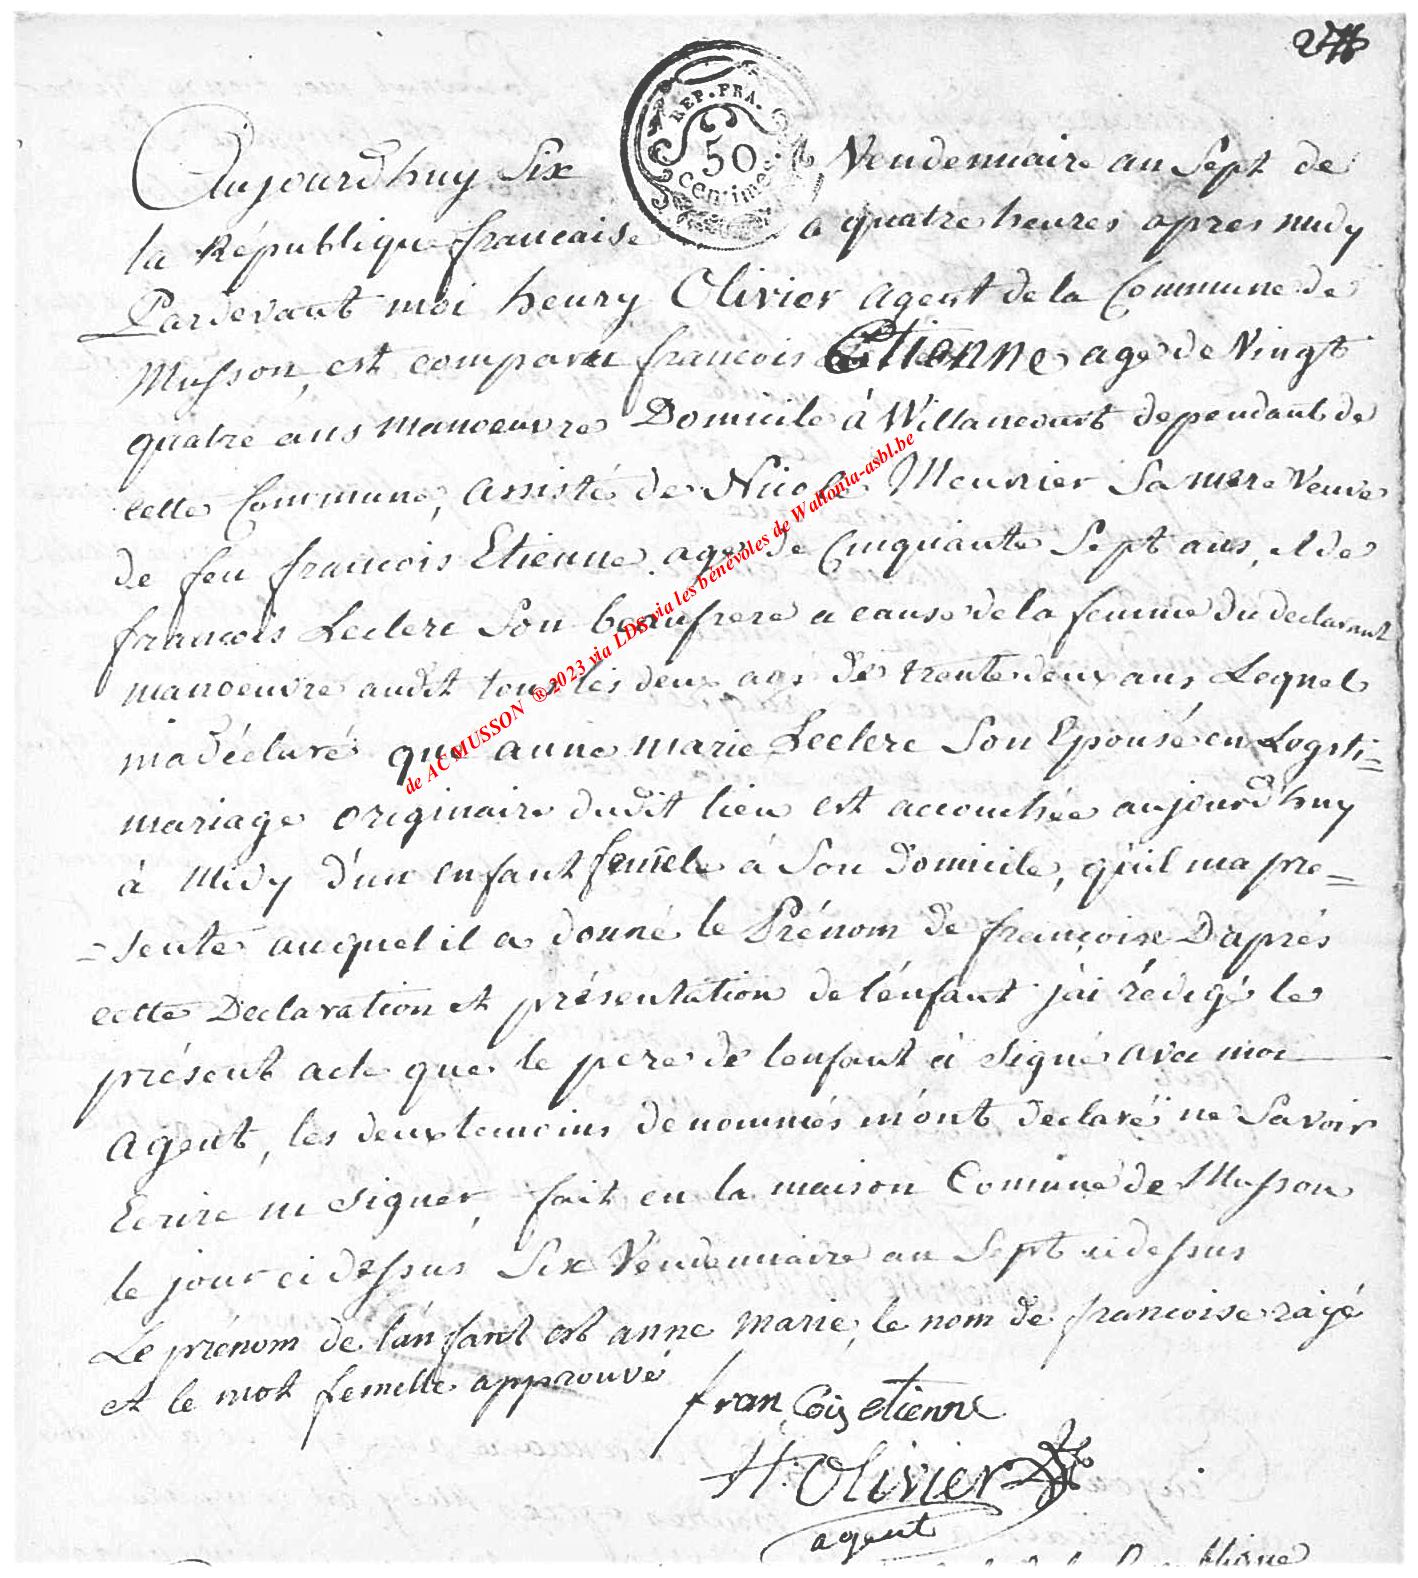 2
REP. FRA.
50
centimes
Aujourd'huy Six Vendemiaire an Sept de
la République francaise a quatre heures apres midy
Pardevant moi henry Olivier agent de la Commune de
Musson, est comparu francois Etienne agé de Vingt
quatre ans manoeuvre Domicile à Willancourt dependant de
cette Commune, assisté de Nicole Meunier Sa mere Veuve
de feu francois Etienne agé de Cinquante Sept ans, et de
francois Leclerc Son beaufrere a cause de la femme du declarant
manoeuvre audit tous les deux agé de trente deux ans Lequel
ma déclaré que anne marie Leclerc Son Epouse en Legiti=
mariage originaire dudit lieu est accouchée aujourd'huy
à Midy d'un enfant femele à Son Domicile, qu'il ma pre=
=sente auquel il a donné le Prénom de françoise D'aprés
cette Declaration et présentation de l'enfant j'ai rédigé le
présent acte que le pere de lenfant à signé avec moi
agent, les deux temoins dénommés m'ont declaré ne Savoir
Ecrire ni signer, fait en la maison Comune de Musson
le jour ci dessus Six Vendemiaire an Sept ci dessus
Le prénom de l'anfant est anne marie, le nom de francoise rayé
et le mot femelle approuvé
francois etienne
H. Olivier
agent
de AC MUSSON ®2023 via LDS via les bénévoles de Wallonia-asbl.be